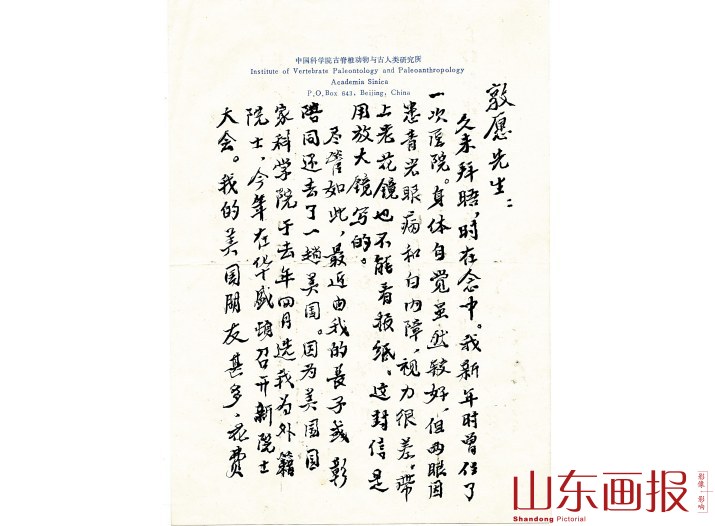 中国科学院古脊椎动物与古人类研究所
Institute of Vertebrate Paleontology and Paleoanthropology
Academia Sinica
P.O.Box 643, Beijing, China
敦愿先生：
久未拜晤，时在念中。我新年时曾住了
一次医院。身体自觉虽然较好，但两眼因
患青光眼病和白内障，视力很差。带
上老花镜也不能看报纸。这封信是
用放大镜写的。
尽管如此，最近由我的长子彧彰
陪同还去了一趟美国。因为美国国
家科学院于去年四月选我为外籍
院士，今年在华盛顿召开新院士
大会。我的美国朋友甚多，花费
山东画报
影像·影响
Shandong Pictorial